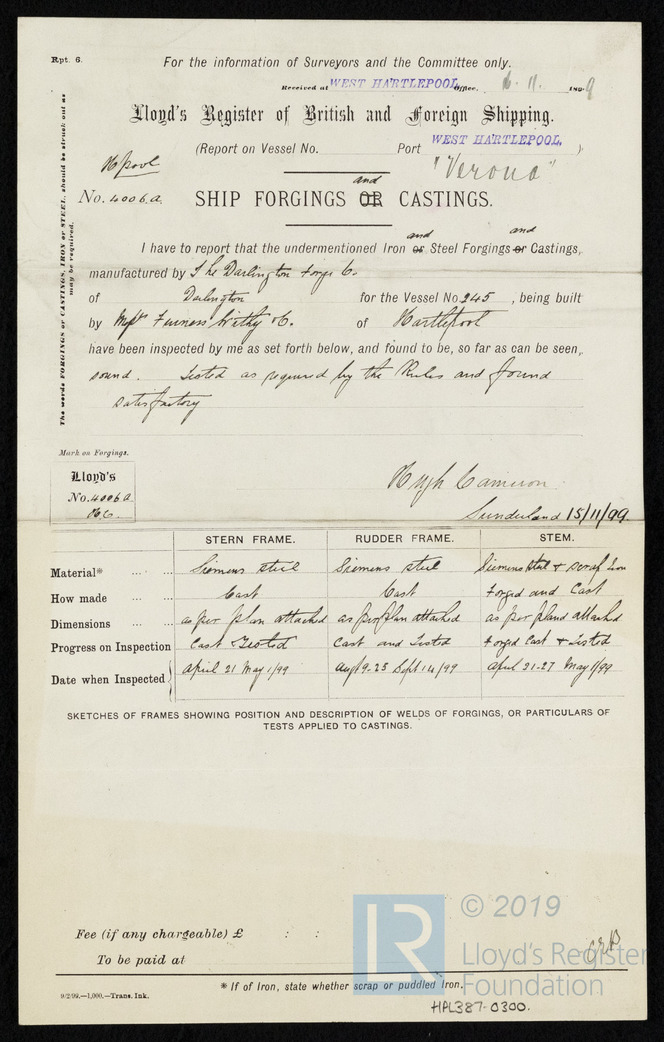 Rpt. 6.
For the information of Surveyors and the Committee only.
Received at WEST HARTLEPOOL Office, 16. 11. 1899
Lloyd's Register of British and Foreign Shipping.
(Report on Vessel No. Port WEST HARTLEPOOL. )
"Verona"
Hpool
No. 4006.a.
and
SHIP FORGINGS OR CASTINGS.
The words FORGINGS or CASTINGS, IRON or STEEL, should be struck out as may be required.
and and
I have to report that the undermentioned Iron or Steel Forgings or Castings,
manufactured by The Darlington Forge Co.
of Darlington for the Vessel No. 245, being built
by Messrs Furness Withy & Co. of Hartlepool
have been inspected by me as set forth below, and found to be, so far as can be seen,
sound. Tested as required by the Rules and found
satisfactory
Mark on Forgings.
Lloyd's
No. 4006a
H.C.
Hugh Cameron
Sunderland 15/11/99
STERN FRAME. RUDDER FRAME. STEM.
Material* ... ... Siemens steel Siemens steel Siemens steel & scrap Iron
How made ... ... Cast Cast Forged and Cast
Dimensions ... ... as per plan attached as per plan attached as per pland attached
Progress on Inspection Cast Tested Cast and Tested Forged Cast & Tested
Date when Inspected April 21 May 1/99 Augt 9. 25 Sept 14/99 April 21-27 May 1/99
SKETCHES OF FRAMES SHOWING POSITION AND DESCRIPTION OF WELDS OF FORGINGS, OR PARTICULARS OF
TESTS APPLIED TO CASTINGS.
Fee (if any chargeable) £ : :
To be paid at
* If of Iron, state whether scrap or puddled Iron.
9/2/99.—1,000.—Trans. Ink.
HPL387-0300.
LR
© 2019
Lloyd's Register
Foundation